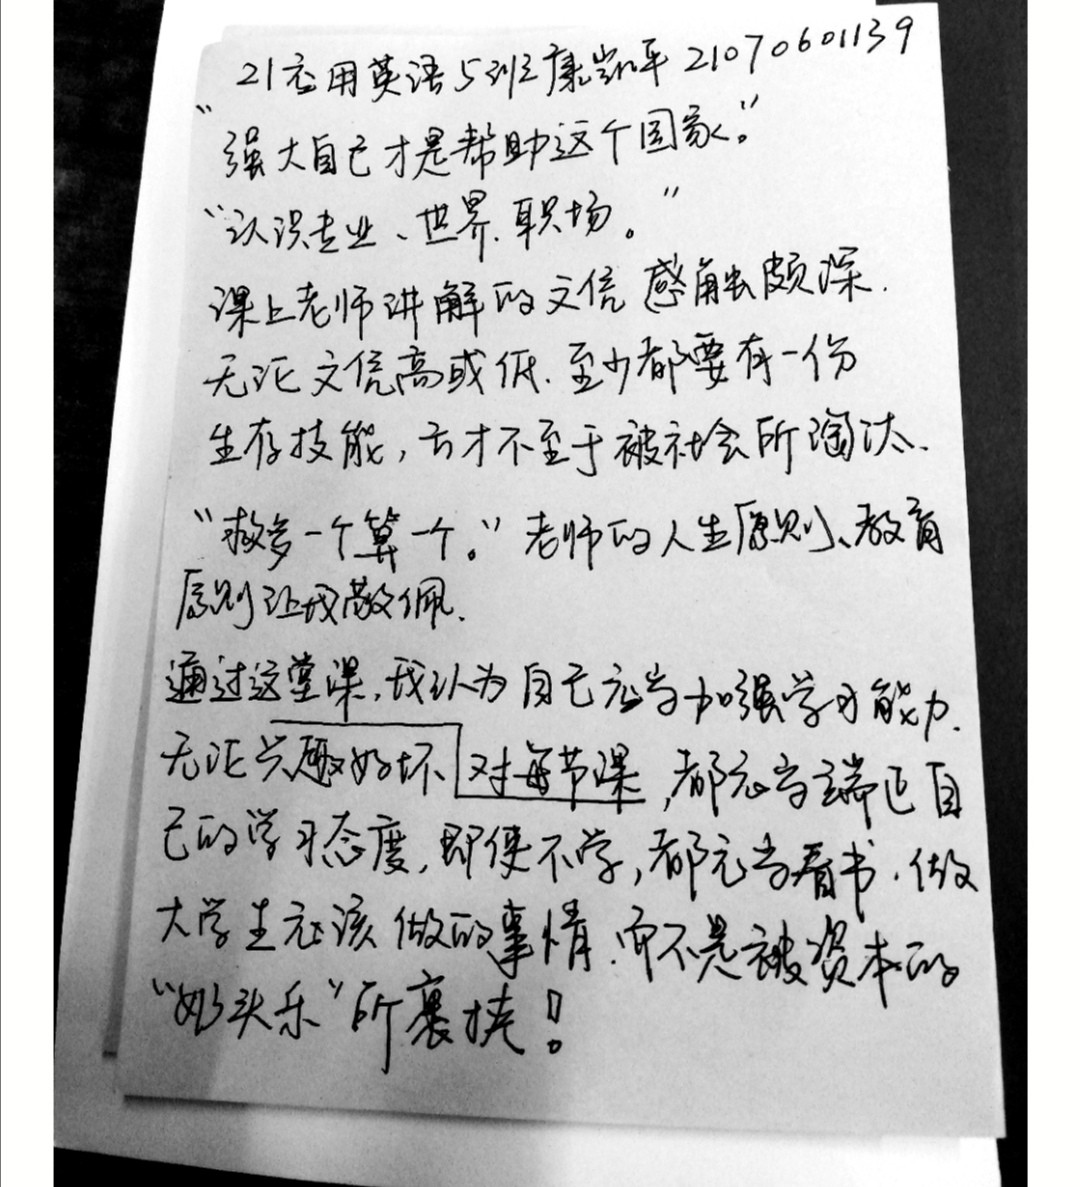 21应用英语5班康凯平 21070601139
“强大自己才是帮助这个国家。”
“认识专业、世界、职场。”
课上老师讲解的文信感触颇深.
无论文信高或低.至少都要有一份
生存技能,方才不至于被社会所淘汰.
“救多一个算一个。”老师的人生原则、教育
原则让我敬佩.
通过这堂课,我认为自己应当加强学习能力.
无论兴趣好坏 对每节课,都应当端正自
己的学习态度,即使不学,都应当看书.做
大学生应该做的事情.而不是被资本的
“奶头乐”所裹挟!